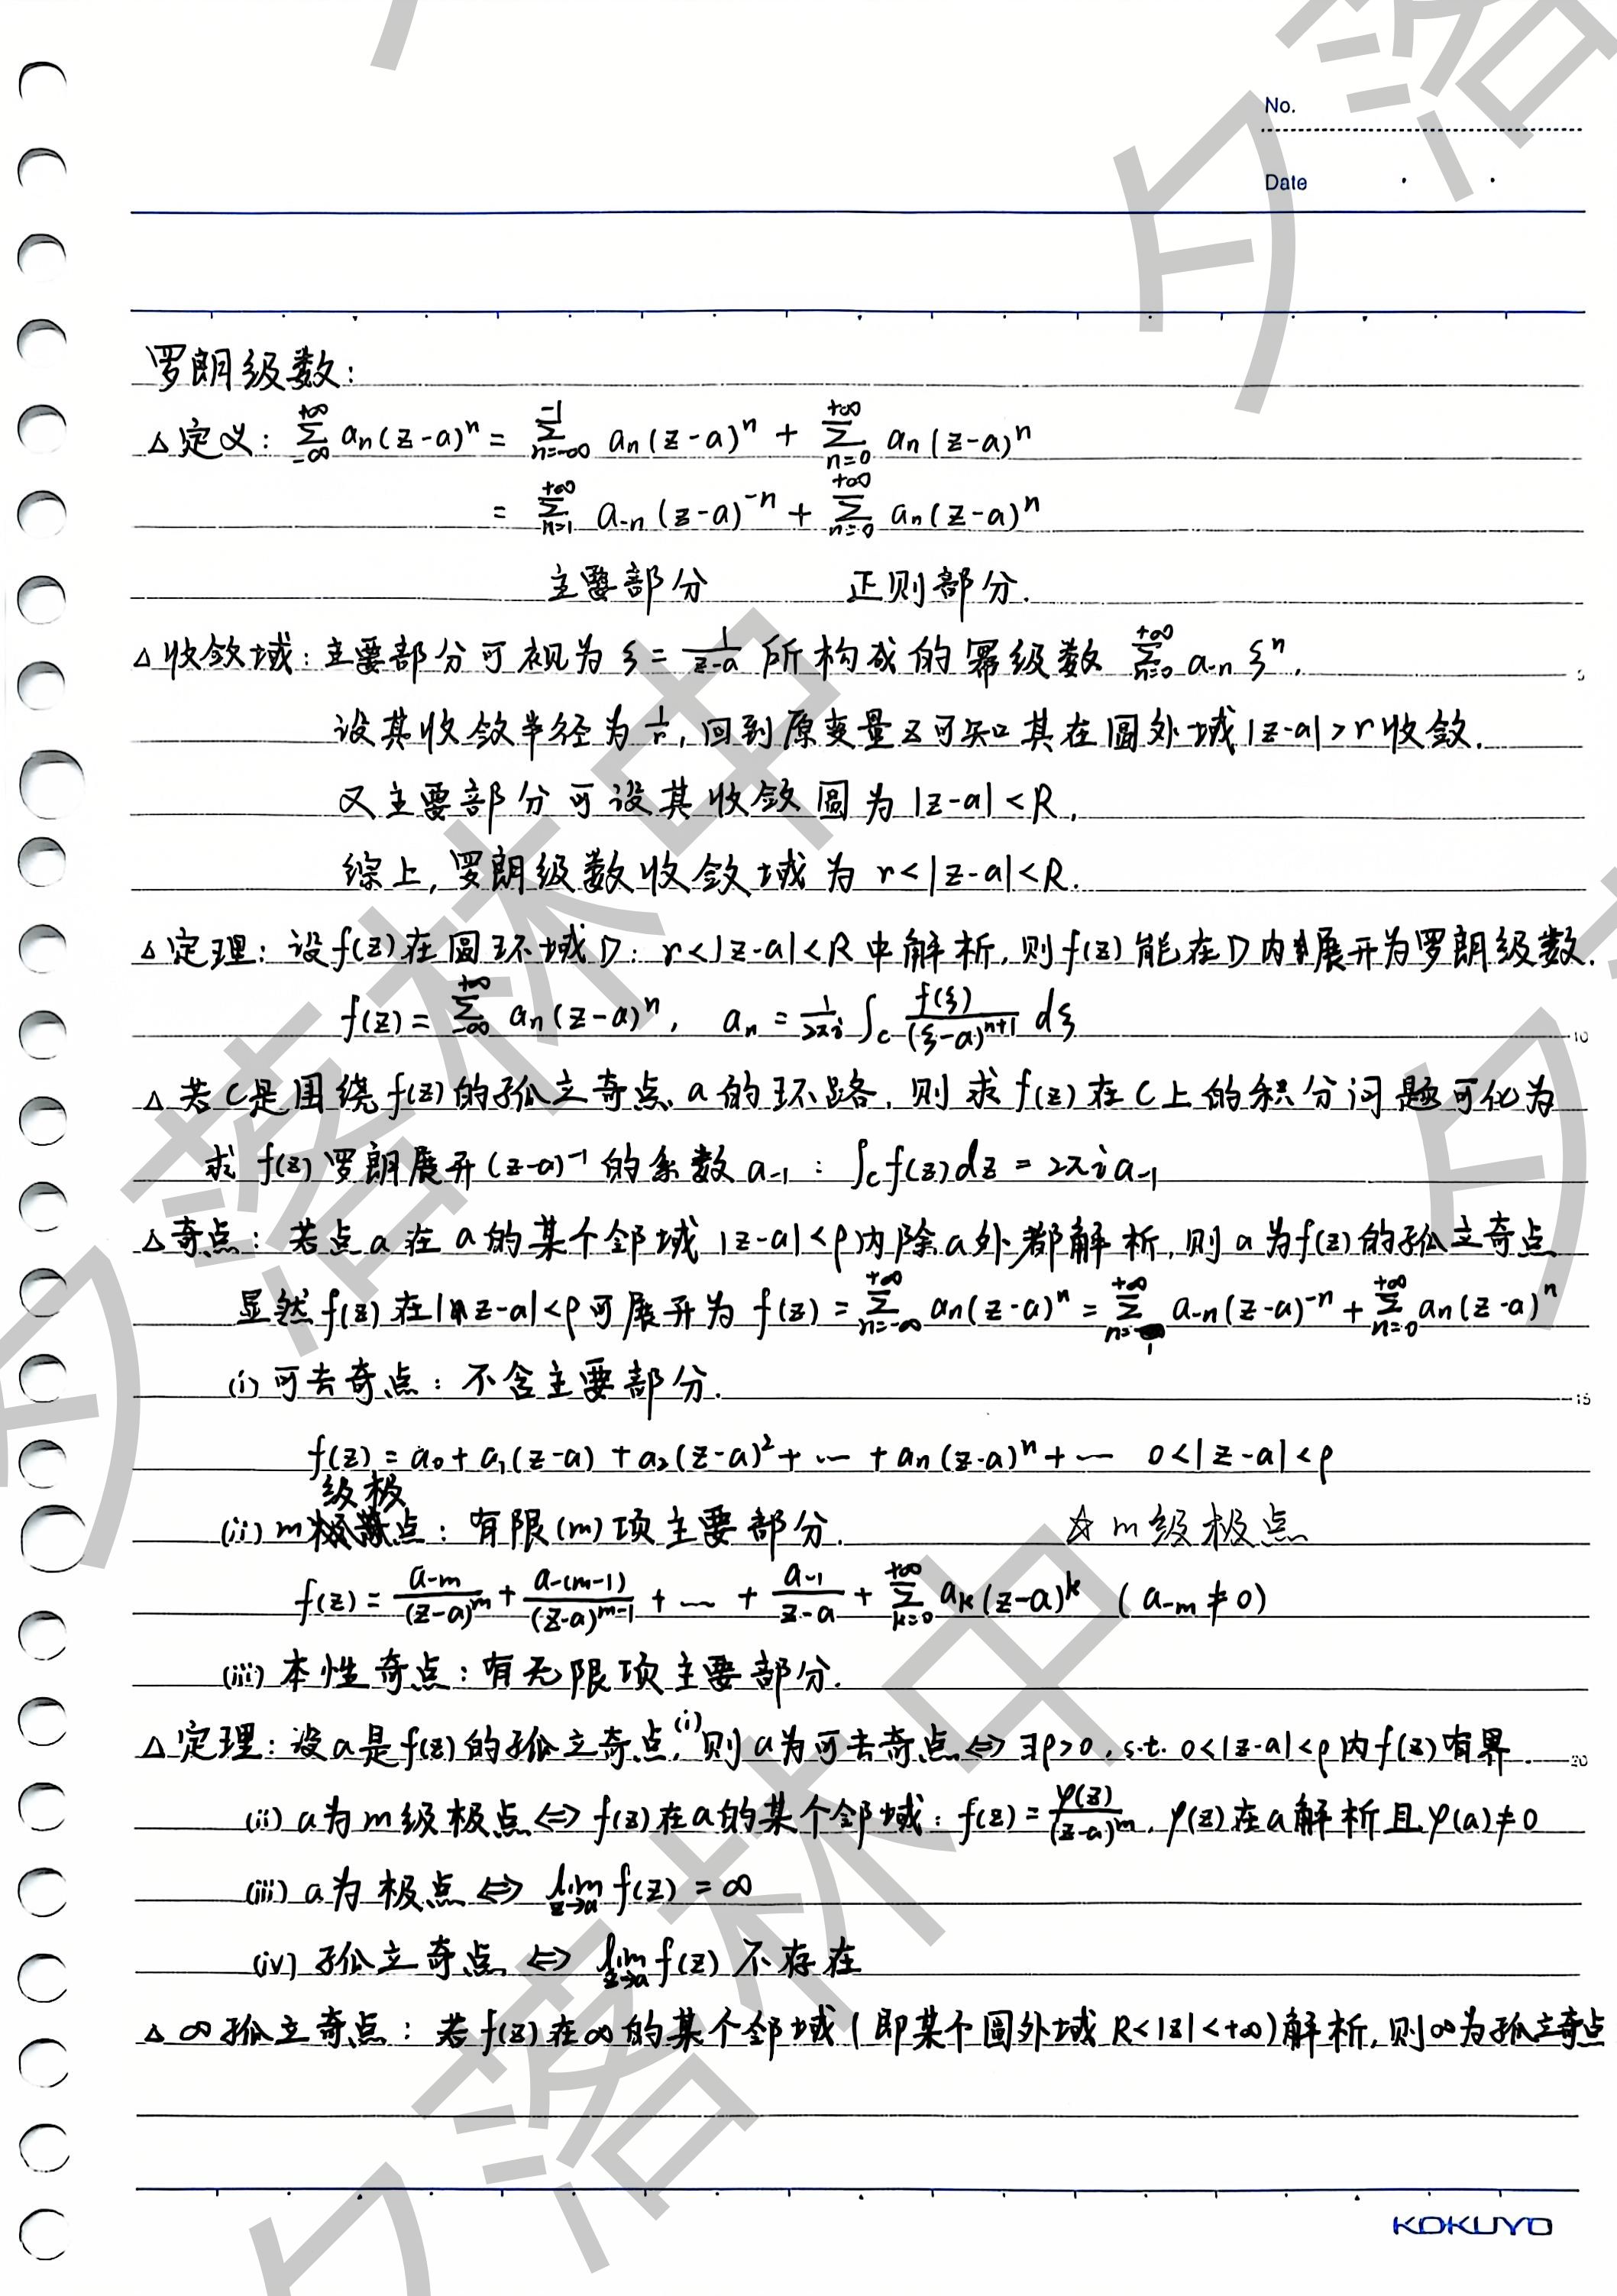 No.
Date
罗朗级数:
△定义: \sum_{-∞}^{+∞} a_n(z-a)^n = \sum_{n=-∞}^{-1} a_n(z-a)^n + \sum_{n=0}^{+∞} a_n(z-a)^n
= \sum_{n=1}^{+∞} a_{-n}(z-a)^{-n} + \sum_{n=0}^{+∞} a_n(z-a)^n
主要部分 正则部分.
△收敛域: 主要部分可视为 ξ = \frac{1}{z-a} 所构成的幂级数 \sum_{n=0}^{+∞} a_{-n} ξ^n.
5
设其收敛半径为 \frac{1}{r}, 回到原变量z可知其在圆外域 |z-a|>r 收敛.
又主要部分可设其收敛圆为 |z-a|<R,
综上, 罗朗级数收敛域为 r<|z-a|<R.
△定理: 设f(z)在圆环域D: r<|z-a|<R中解析, 则f(z)能在D内展开为罗朗级数.
f(z) = \sum_{-∞}^{+∞} a_n(z-a)^n, a_n = \frac{1}{2πi} ∫_C \frac{f(ξ)}{(ξ-a)^{n+1}} dξ
10
△若C是围绕f(z)的孤立奇点a的环路, 则求f(z)在C上的积分问题可化为
求f(z)罗朗展开(z-a)^{-1}的系数a_{-1}: ∫_C f(z)dz = 2πi a_{-1}
△奇点: 若点a在a的某个邻域 |z-a|<ρ内除a外都解析, 则a为f(z)的孤立奇点
显然f(z)在|z-a|<ρ可展开为 f(z) = \sum_{n=-∞}^{+∞} a_n(z-a)^n = \sum_{n=1}^{+∞} a_{-n}(z-a)^{-n} + \sum_{n=0}^{+∞} a_n(z-a)^n
(i) 可去奇点: 不含主要部分.
15
f(z) = a_0 + a_1(z-a) + a_2(z-a)^2 + … + a_n(z-a)^n + … 0<|z-a|<ρ
(ii) m级极点: 有限(m)项主要部分. ☆ m级极点
f(z) = \frac{a_{-m}}{(z-a)^m} + \frac{a_{-(m-1)}}{(z-a)^{m-1}} + … + \frac{a_{-1}}{z-a} + \sum_{k=0}^{+∞} a_k(z-a)^k (a_{-m}≠0)
(iii) 本性奇点: 有无限项主要部分.
△定理: 设a是f(z)的孤立奇点, (i)则a为可去奇点⇔∃ρ>0, s.t. 0<|z-a|<ρ内f(z)有界.
20
(ii) a为m级极点⇔f(z)在a的某个邻域: f(z) = \frac{φ(z)}{(z-a)^m}, φ(z)在a解析且φ(a)≠0
(iii) a为极点⇔ \lim_{z→a} f(z) = ∞
(iv) 孤立奇点 ⇔ \lim_{z→a} f(z) 不存在
△ ∞孤立奇点: 若f(z)在∞的某个邻域(即某个圆外域R<|z|<+∞)解析, 则∞为孤立奇点
KOKUYO
夕落林中
夕落林中
夕落
夕
夕